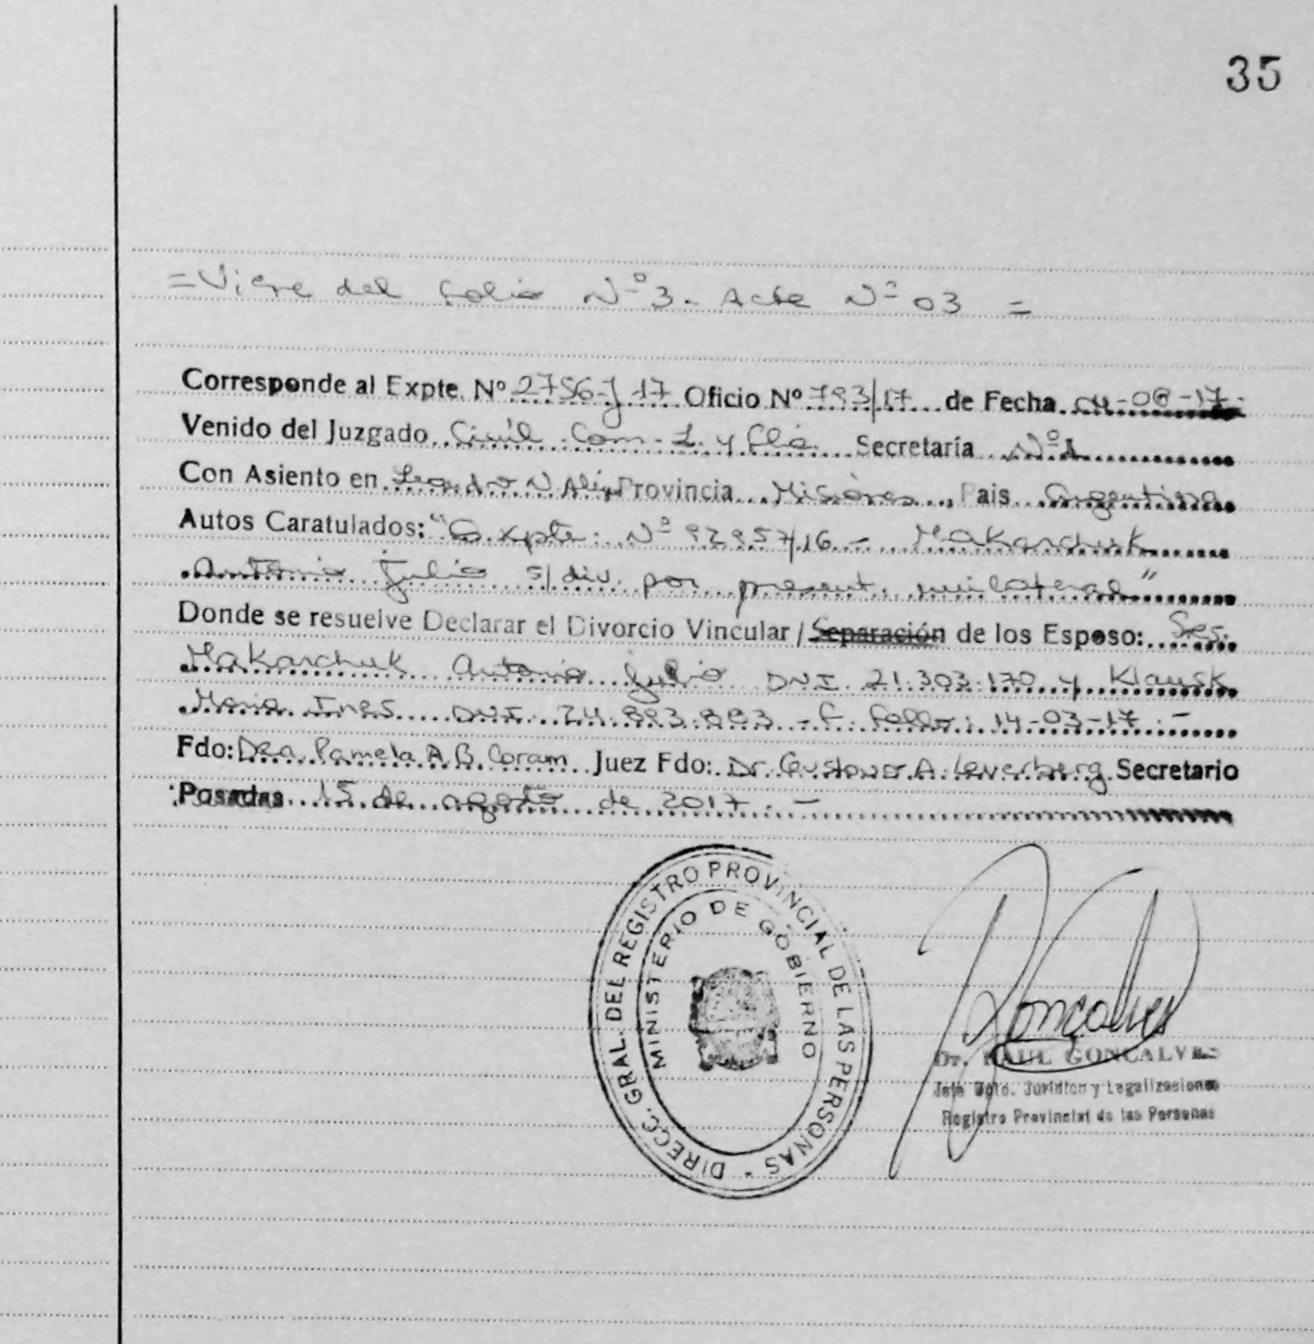 35
=Viene del folio Nº3. Acta Nº 03 =
Corresponde al Expte. Nº 2756-J-17 Oficio Nº 793/17 de Fecha 04-08-17-
Venido del Juzgado Civil Com. L. y flia. Secretaría Nº1
Con Asiento en Leandro N Alem Provincia Misiones, Pais Argentina
Autos Caratulados: "Expte: Nº 92957/16 - Makarchuk
Antonio Julio s/div. por present. unilateral"
Donde se resuelve Declarar el Divorcio Vincular / Separación de los Esposo: Sres.
Makarchuk Antonio Julio DNI 21.303.170 y Klausk
Maria Ines DNI 24.883.883 - f. fallo: 14-03-17.-
Fdo: Dra. Pamela A.B. Coram Juez Fdo: Dr. Gustavo A. Leverberg Secretario
Posadas 15 de agosto de 2017.-
DIRECC. GRAL. DEL REGISTRO PROVINCIAL DE LAS PERSONAS -
MINISTERIO DE GOBIERNO
Goncalves
Dr. RAUL GONCALVES
Jefe Dpto. Jurídico y Legalizaciones
Registro Provincial de las Personas